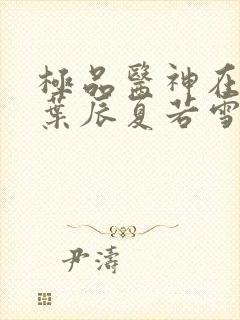 極品醫神在
葉辰夏若雪
尹濤